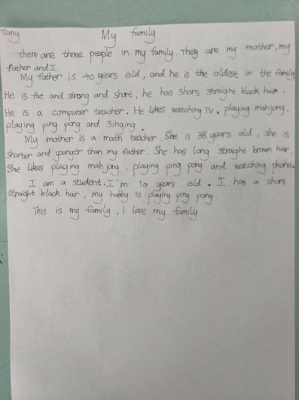 Tony My family
there are three people in my family. They are my mother, my
father and I.
My father is 40 years old, and he is the oldest in the family
He is the and strong and share, he has shors straight black hair.
He is a computer teacher. He likes watching TV, playing mahjong,
playing ping pong and
My mother is a math teacher She is 38 years old, she is
Shorter and younger than my father. She has long straight brown hair
She likes playing mahjong, playing ping pong and watching
I am a student. I'm 10 years old. I has a short
straight black hair, my hobby is playing ping pong
This is my family, I love my family